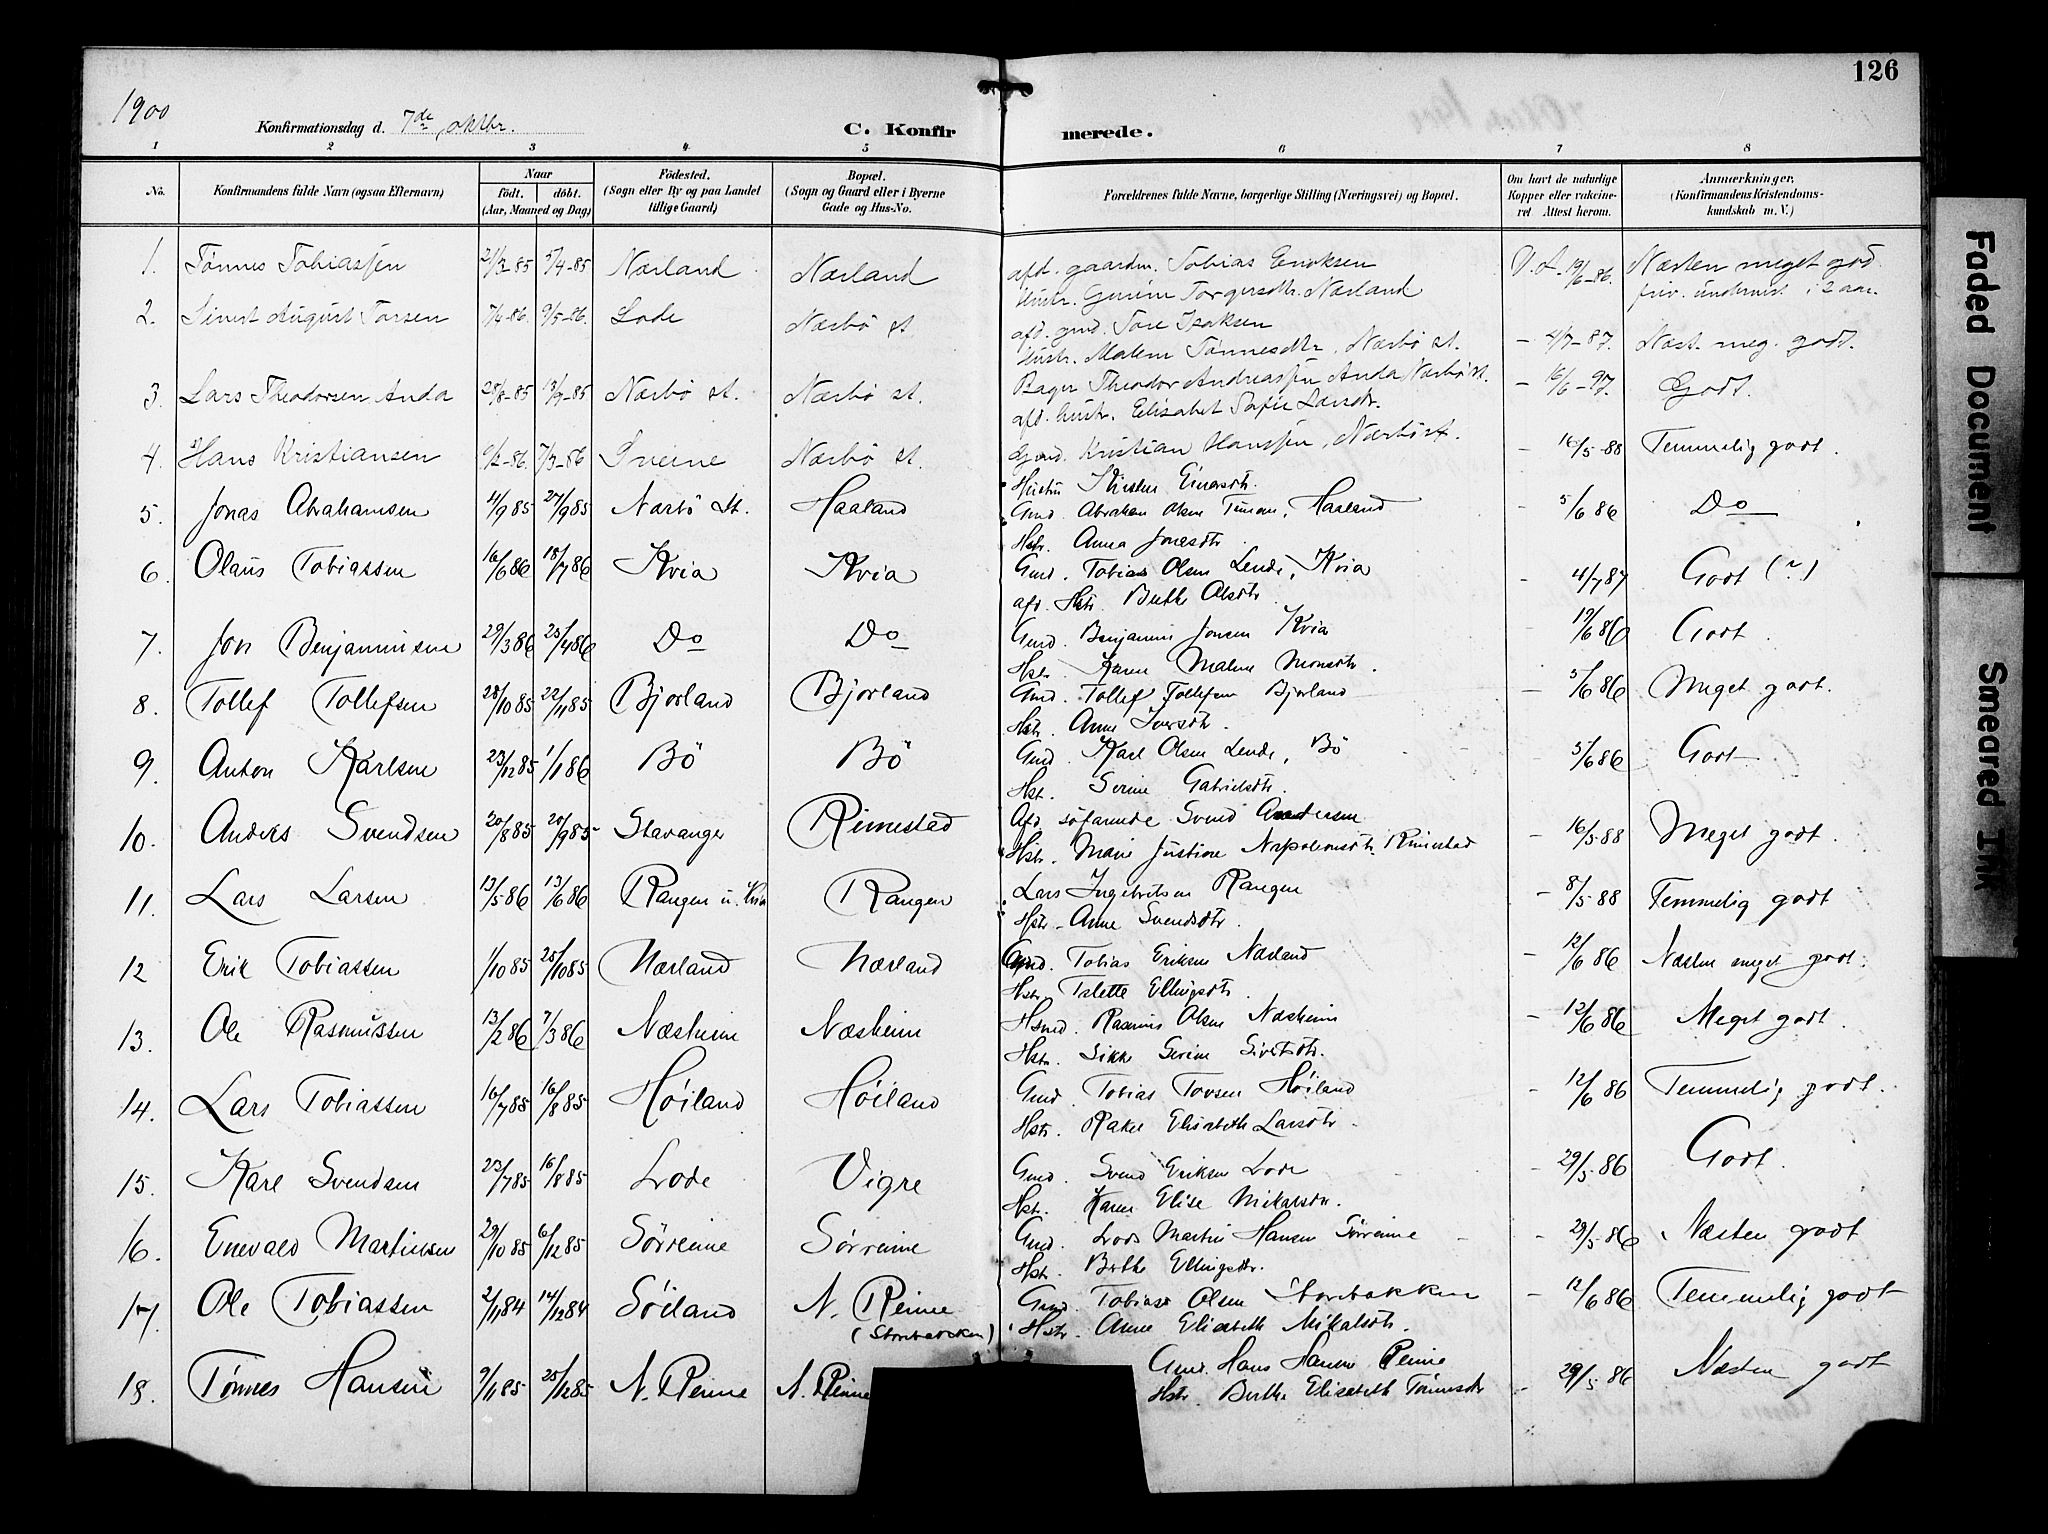 126
1900
Konfirmationsdag d. 7de oktbr.
C. Konfirmerede.
1 2 3 4 5 6 7 8
No.
Konfirmandens fulde Navn (ogsaa Efternavn)
Naar
født. døbt.
(Aar, Maaned og Dag)
Fødested.
(Sogn eller By og paa Landet
tillige Gaard)
Bopæl.
(Sogn og Gaard eller i Byerne
Gade og Hus-No.
Forældrenes fulde Navne, borgerlige Stilling (Næringsvei) og Bopæl.
Om havt de naturlige
Kopper eller vaccine-
ret Attest herom.
Anmærkninger.
(Konfirmandens Kristendoms-
kundskab m. V.)
1. Tønnes Tobiassen 21/3-85 5/4-85 Nærland Nærland afd. gaardm. Tobias Eriksen V.A. 19/6-86. Næsten meget god
Hustr. Gurine Torgersdtr. Nærland priv. undervist i 2 aar.
2. Sivert August Torsen 7/4-86. 9/5-86. Lode Nærbö st afd. gmd. Tore Isaksen
Hustr. Malene Tønnesdtr, Nærbö st. - 4/7-87. Næst. meg. godt.
3. Lars Theodorsen Anda 28/8-85 13/9-85 Nærbö st. Nærbö st. Bager Theodor Andreassen Anda Nærbö st. - 16/6-97. Godt.
afd. hustr. Elisabet Sofie Larsdtr.
4. Hans Kristiansen 9/2-86. 7/3-86 Nærbö st. Gmd. Kristian Hanssen, Nærbö st. - 16/5-88 Temmelig godt.
Hustru Kirsten Einarsdtr.
5. Jonas Abrahamsen 4/9 85 27/9 85 Nærbö St. Haaland Gmd. Abraham Olsen Haaland - 5/6 86 Do
Hstr. Anna Jonasdtr
6. Olaus Tobiassen 16/6 86 18/7 86 Kvia Kvia Gmd. Tobias Olsen Lende, Kvia - 4/7 87 Godt (~)
afd. Hstr. Berthe Olsdtr
7. Jon Benjaminsen 29/3 86 25/4 86 Do Do Gmd. Benjamin Jonsen Kvia 19/6 86 Godt.
Hst. Karen Malene Monsdtr.
8. Tollef Tollefsen 28/10 85 22/11 85 Bjorland Bjorland Gmd. Tollef Tollefsen Bjorland - 5/6 86 Meget godt.
Hstr. Anne Iversdtr.
9. Anton Karlsen 23/12 85 1/1 86 Bö Bö Gmd. Karl Olsen Lende, Bö - 5/6 86 Godt
Hst. Serine Gabrielsdtr.
10. Anders Svendsen 20/8 85 20/9 85 Stavanger Rimestad Afd. søfarende Svend Andersen
Hstr. Marie Justine Napoleonsdtr. Rimestad - 16/5 88 Meget godt.
11. Lars Larsen 13/5 86 13/6 86 Rangen u. Kvia Rangen Lars Ingebretsen Rangen - 8/5 88 Temmelig godt
Hstr. Anne Svendsdtr.
12 Erik Tobiassen 1/10 85 25/10 85 Nærland Nærland Gmd. Tobias Eriksen Nærland - 12/6 86 Næsten meget godt.
Hstr. Talette Ellingsdtr.
13. Ole Rasmussen 13/2 86 7/3 86 Næsheim Næsheim Hsmd. Rasmus Olsen Næsheim - 12/6 86 Meget godt.
Hstr. Sikke Serine Sivertsdtr.
14. Lars Tobiassen 16/7 85 16/8 85 Høiland Høiland Gmd. Tobias Torsen Høiland - 12/6 86 Temmelig godt.
Hstr. Rakel Elisabeth Larsdtr.
15. Karl Svendsen 23/7 85 16/8 85 Lode Vigre Gmd. Svend Eriksen Lode - 29/5 86 Godt.
Hst. Karen Elise Mikalsdtr.
16. Enevald Martinsen 29/10 85 6/12 85 Sørreime Sørreime Gmd. Martin Hansen Sørreime - 29/5 86 Næsten godt
Hst. Berthe Ellingsdtr.
17. Ole Tobiassen 2/11 84 14/12 84 Söiland N. Reime Gmd. Tobias Olsen Storebakken - 12/6 86 Temmelig godt
(Storebakken) Hstr. Anne Elisabeth Mikalsdtr.
18. Tønnes Hansen 9/11 85 25/12 85 N. Reime N. Reime Gmd. Hans Hansen Reime
Hstr. Berthe Elisabeth Tönnesdtr - 29/5 86 Næsten godt
Faded Document
Smeared Ink